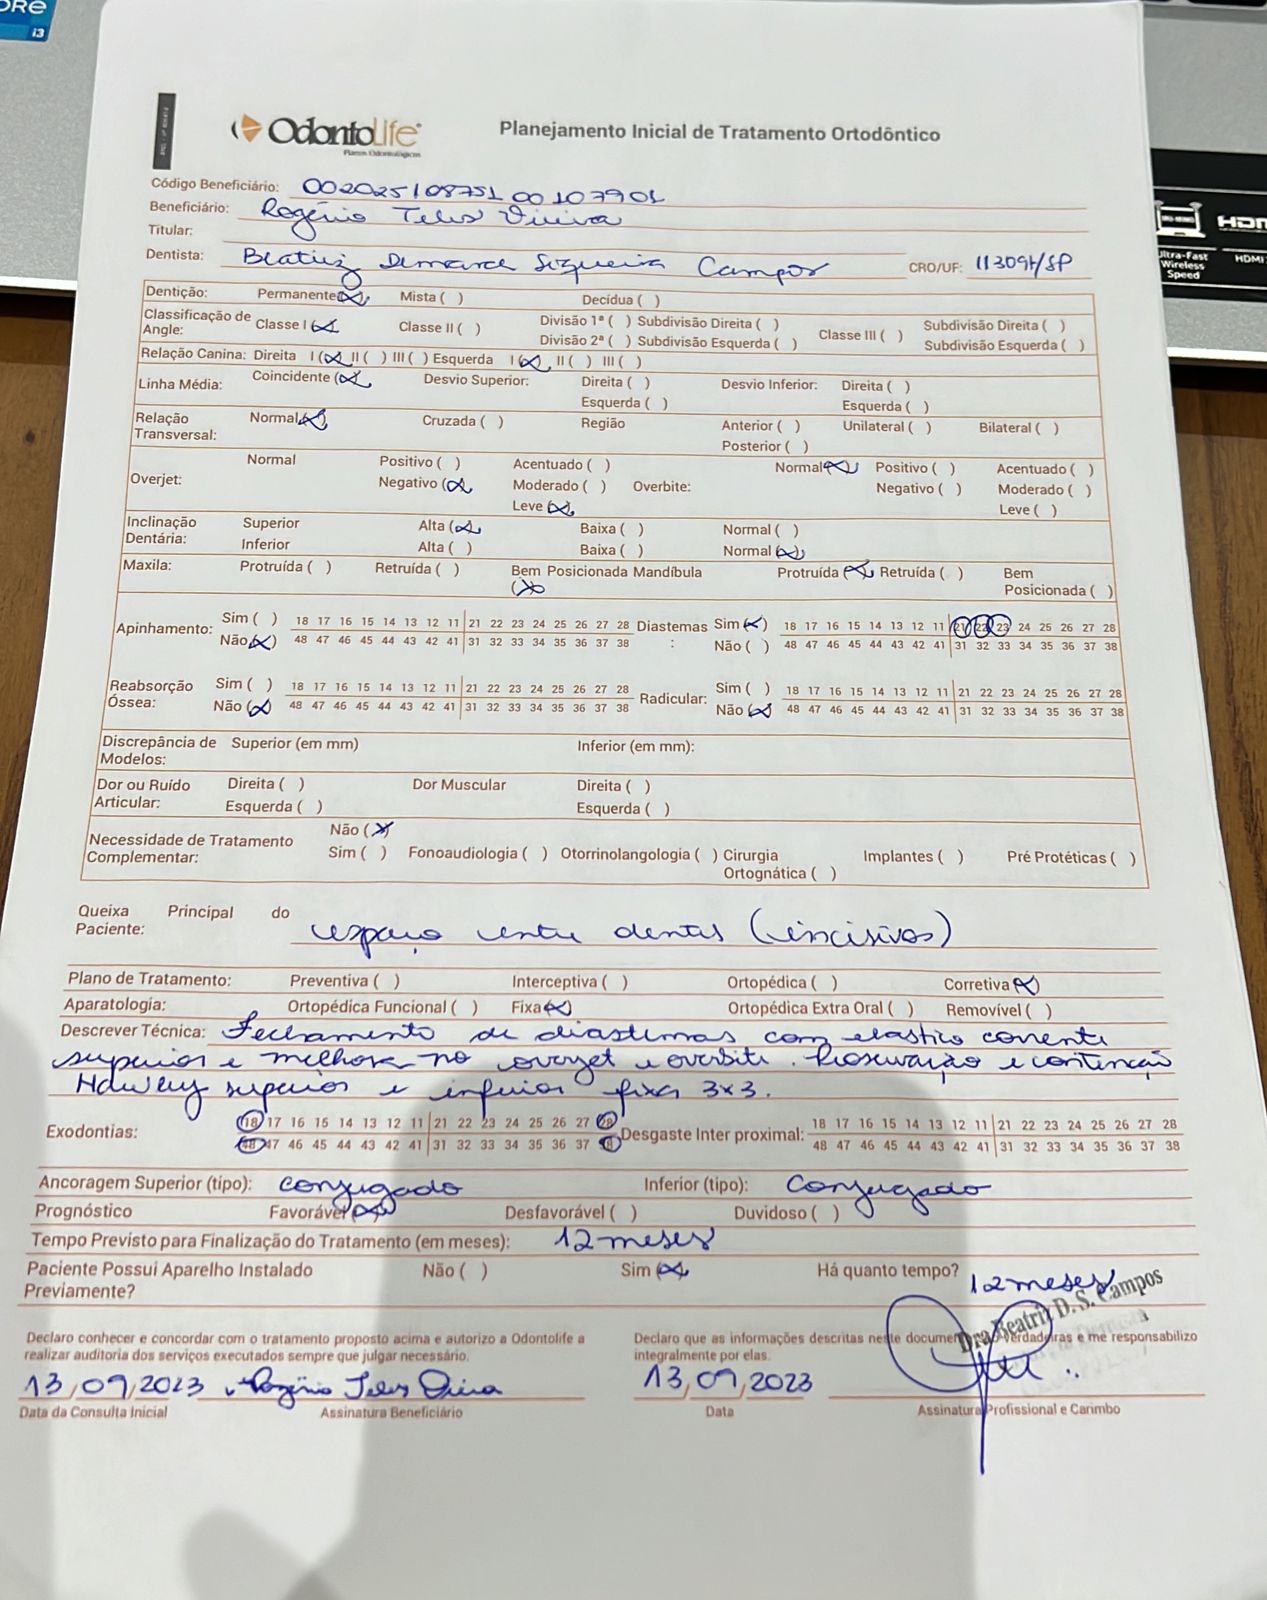 ORE
i3
HDMI
Ultra-Fast
Wireless
Speed
HDMI
OdontoLife
Planos Odontológicos
Planejamento Inicial de Tratamento Ortodôntico
Código Beneficiário: 002025108751 00107901
Beneficiário: Rogério Teles Vieira
Titular:
Dentista: Beatriz Demarch Siqueira Campos CRO/UF: 113091/SP
Dentição: Permanente (x) Mista ( ) Decídua ( )
Classificação de Angle: Classe I (x) Classe II ( ) Divisão 1ª ( ) Subdivisão Direita ( ) Classe III ( ) Subdivisão Direita ( )
Divisão 2ª ( ) Subdivisão Esquerda ( ) Subdivisão Esquerda ( )
Relação Canina: Direita I (x) II ( ) III ( ) Esquerda I (x) II ( ) III ( )
Linha Média: Coincidente (x) Desvio Superior: Direita ( ) Desvio Inferior: Direita ( )
Esquerda ( ) Esquerda ( )
Relação Transversal: Normal (x) Cruzada ( ) Região Anterior ( ) Unilateral ( ) Bilateral ( )
Posterior ( )
Overjet: Normal Positivo ( ) Acentuado ( ) Overbite: Normal (x) Positivo ( ) Acentuado ( )
Negativo (x) Moderado ( ) Negativo ( ) Moderado ( )
Leve (x) Leve ( )
Inclinação Dentária: Superior Alta (x) Baixa ( ) Normal ( )
Inferior Alta ( ) Baixa ( ) Normal (x)
Maxila: Protruída ( ) Retruída ( ) Bem Posicionada (x) Mandíbula Protruída (x) Retruída ( ) Bem Posicionada ( )
Apinhamento: Sim ( ) 18 17 16 15 14 13 12 11 21 22 23 24 25 26 27 28 Diastemas : Sim (x) 18 17 16 15 14 13 12 11 21 22 23 24 25 26 27 28
Não (x) 48 47 46 45 44 43 42 41 31 32 33 34 35 36 37 38 Não ( ) 48 47 46 45 44 43 42 41 31 32 33 34 35 36 37 38
Reabsorção Óssea: Sim ( ) 18 17 16 15 14 13 12 11 21 22 23 24 25 26 27 28 Radicular: Sim ( ) 18 17 16 15 14 13 12 11 21 22 23 24 25 26 27 28
Não (x) 48 47 46 45 44 43 42 41 31 32 33 34 35 36 37 38 Não (x) 48 47 46 45 44 43 42 41 31 32 33 34 35 36 37 38
Discrepância de Modelos: Superior (em mm) Inferior (em mm):
Dor ou Ruído Articular: Direita ( ) Dor Muscular Direita ( )
Esquerda ( ) Esquerda ( )
Necessidade de Tratamento Complementar: Não (x)
Sim ( ) Fonoaudiologia ( ) Otorrinolangologia ( ) Cirurgia Ortognática ( ) Implantes ( ) Pré Protéticas ( )
Queixa Principal do Paciente: espaço entre dentes (incisivos)
Plano de Tratamento: Preventiva ( ) Interceptiva ( ) Ortopédica ( ) Corretiva (x)
Aparatologia: Ortopédica Funcional ( ) Fixa (x) Ortopédica Extra Oral ( ) Removível ( )
Descrever Técnica: Fechamento de diastemas com elastico corrente
superior e melhora no overjet e overbite. Proservação e contenção
Hawley superior e inferior fixa 3x3.
Exodontias: 18 17 16 15 14 13 12 11 21 22 23 24 25 26 27 28 Desgaste Inter proximal: 18 17 16 15 14 13 12 11 21 22 23 24 25 26 27 28
48 47 46 45 44 43 42 41 31 32 33 34 35 36 37 38 48 47 46 45 44 43 42 41 31 32 33 34 35 36 37 38
Ancoragem Superior (tipo): conjugado Inferior (tipo): conjugado
Prognóstico Favorável (x) Desfavorável ( ) Duvidoso ( )
Tempo Previsto para Finalização do Tratamento (em meses): 12 meses
Paciente Possui Aparelho Instalado Previamente? Não ( ) Sim (x) Há quanto tempo? 12 meses
Dra Beatriz D. S. Campos
Declaro conhecer e concordar com o tratamento proposto acima e autorizo a Odontolife a
realizar auditoria dos serviços executados sempre que julgar necessário.
Declaro que as informações descritas neste documento verdadeiras e me responsabilizo
integralmente por elas.
13/09/2023 Rogério Teles Vieira 13/09/2023
Data da Consulta Inicial Assinatura Beneficiário Data Assinatura Profissional e Carimbo